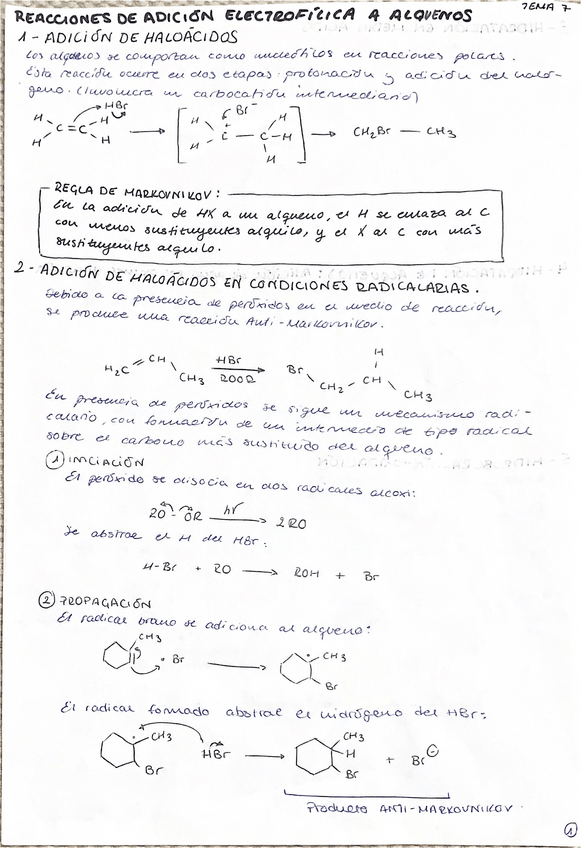 TEMA 7
REACCIONES DE ADICIÓN ELECTROFÍLICA A ALQUENOS
1 - ADICIÓN DE HALOÁCIDOS
Los alquenos se comportan como nucleófilos en reacciones polares.
Esta reacción ocurre en dos etapas: protonación y adición del haló-
geno. (Involucra un carbocatión intermediario)
HBr
H H C = C H H
Br⁻
H H C + — C — H H H
CH₂Br — CH₃
REGLA DE MARKOVNIKOV:
En la adición de HX a un alqueno, el H se enlaza al C
con menos sustituyentes alquilo, y el X al C con más
sustituyentes alquilo.
2 - ADICIÓN DE HALOÁCIDOS EN CONDICIONES RADICALARIAS.
Debido a la presencia de peróxidos en el medio de reacción,
se produce una reacción Anti-Markovnikov.
H₂C = CH CH₃ HBr ROOR Br CH₂ — CH H CH₃
En presencia de peróxidos se sigue un mecanismo radi-
calario, con formación de un intermedio de tipo radical
sobre el carbono más sustituido del alqueno.
1 INICIACIÓN
El peróxido se disocia en dos radicales alcoxi:
RO - OR hν 2 RO
Se abstrae el H del HBr:
H-Br + RO ROH + Br
2 PROPAGACIÓN
El radical bromo se adiciona al alqueno:
CH₃ · Br · CH₃ Br
El radical formado abstrae el hidrógeno del HBr:
· CH₃ Br HBr CH₃ H Br + Br⊖
Producto ANTI-MARKOVNIKOV.
1